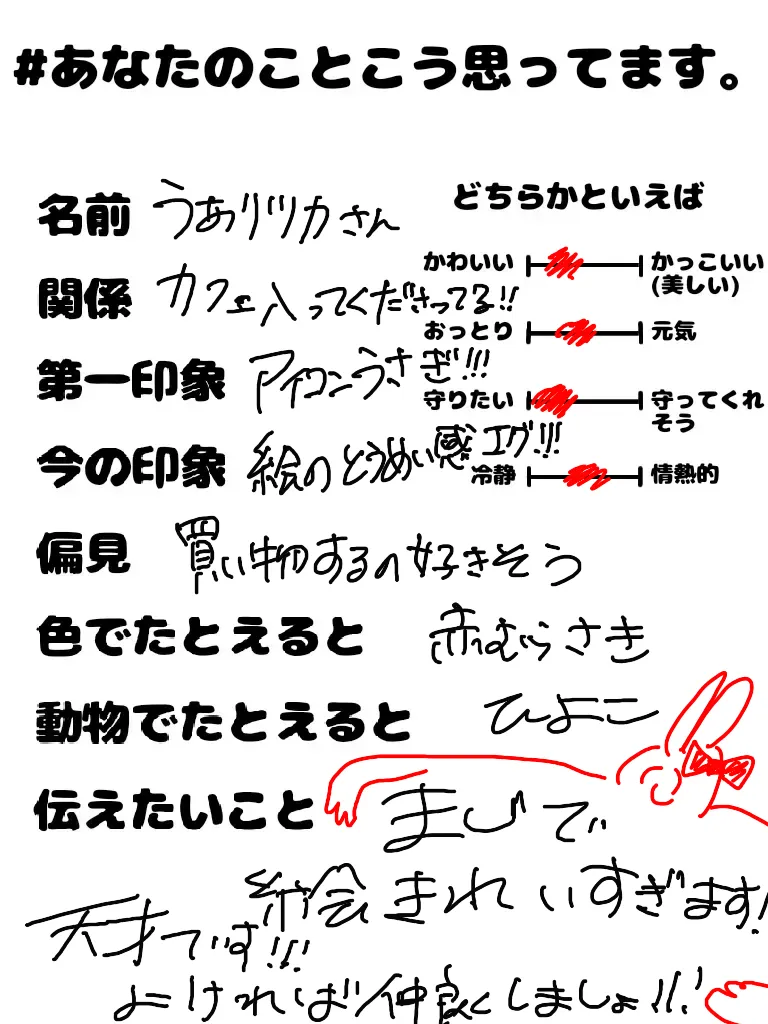 #あなたのことこう思ってます。
名前 うありツカさん
関係 カフェ入ってくださってる!!
第一印象 アイコンうさぎ!!!
今の印象 絵のとうめい感エグ!!!
偏見 買い物するの好きそう
色でたとえると 赤むらさき
動物でたとえると ひよこ
伝えたいこと まじで
絵きれいすぎます!
天才です!!!
よければ仲良くしましょ!!!
どちらかといえば
かわいい かっこいい
(美しい)
おっとり 元気
守りたい 守ってくれ
そう
冷静 情熱的